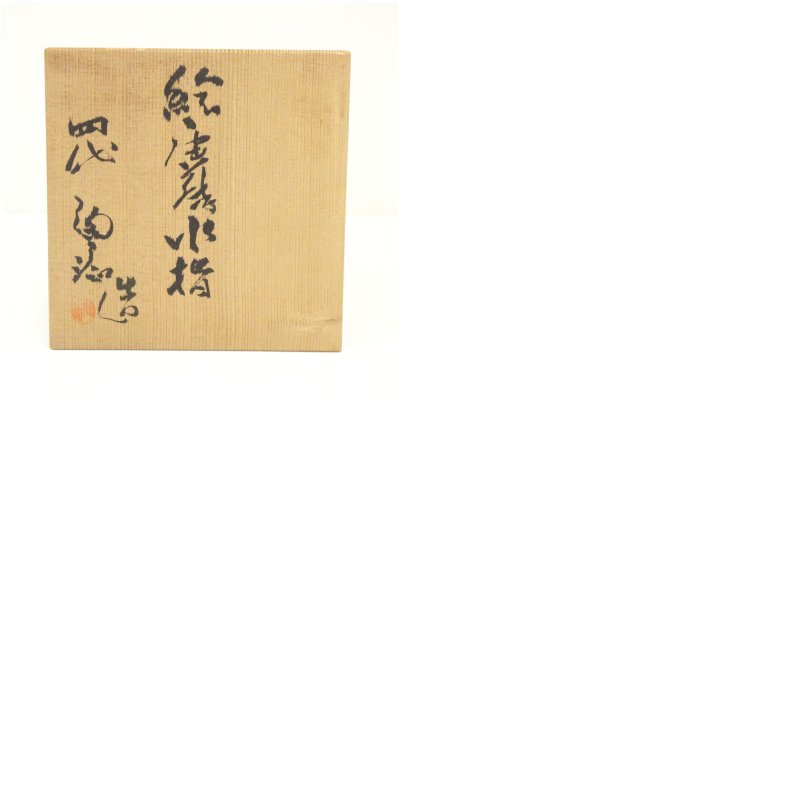 絵唐津水指
四代 陶䂓造